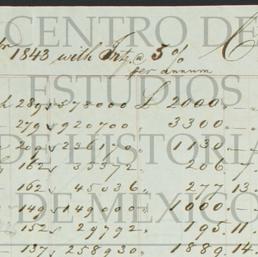 CENTRO DE
ESTUDIOS
DE HISTORIA
DE MEXICO
1843 with Intt @ 5 %
per annum
289 " 578000 £ 2000. –
279 " 920700 3300. –
209 " 236170 1130 –
162 " 33372 206
162 " 45036 277 13.
149 " 149000 1000 –
152 " 29792 195. 11.
137 " 258930 1889. 14.